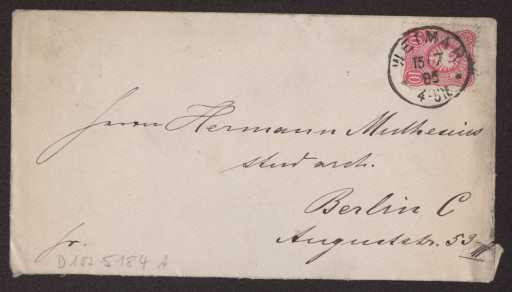 WEIMAR
15 7
85
4-5N.
10
Herrn Hermann Muthesius
stud arch.
Berlin C
Auguststr. 53 II
fr.
D 102-5184 A